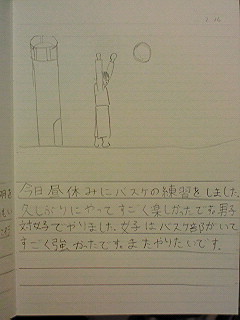 今日昼休みにバスケの練習をしました。
久しぶりにやってすごく楽しかったです。男子
対女子でやりました。女子はバスケ部がいて
すごく強かったです。またやりたいです。